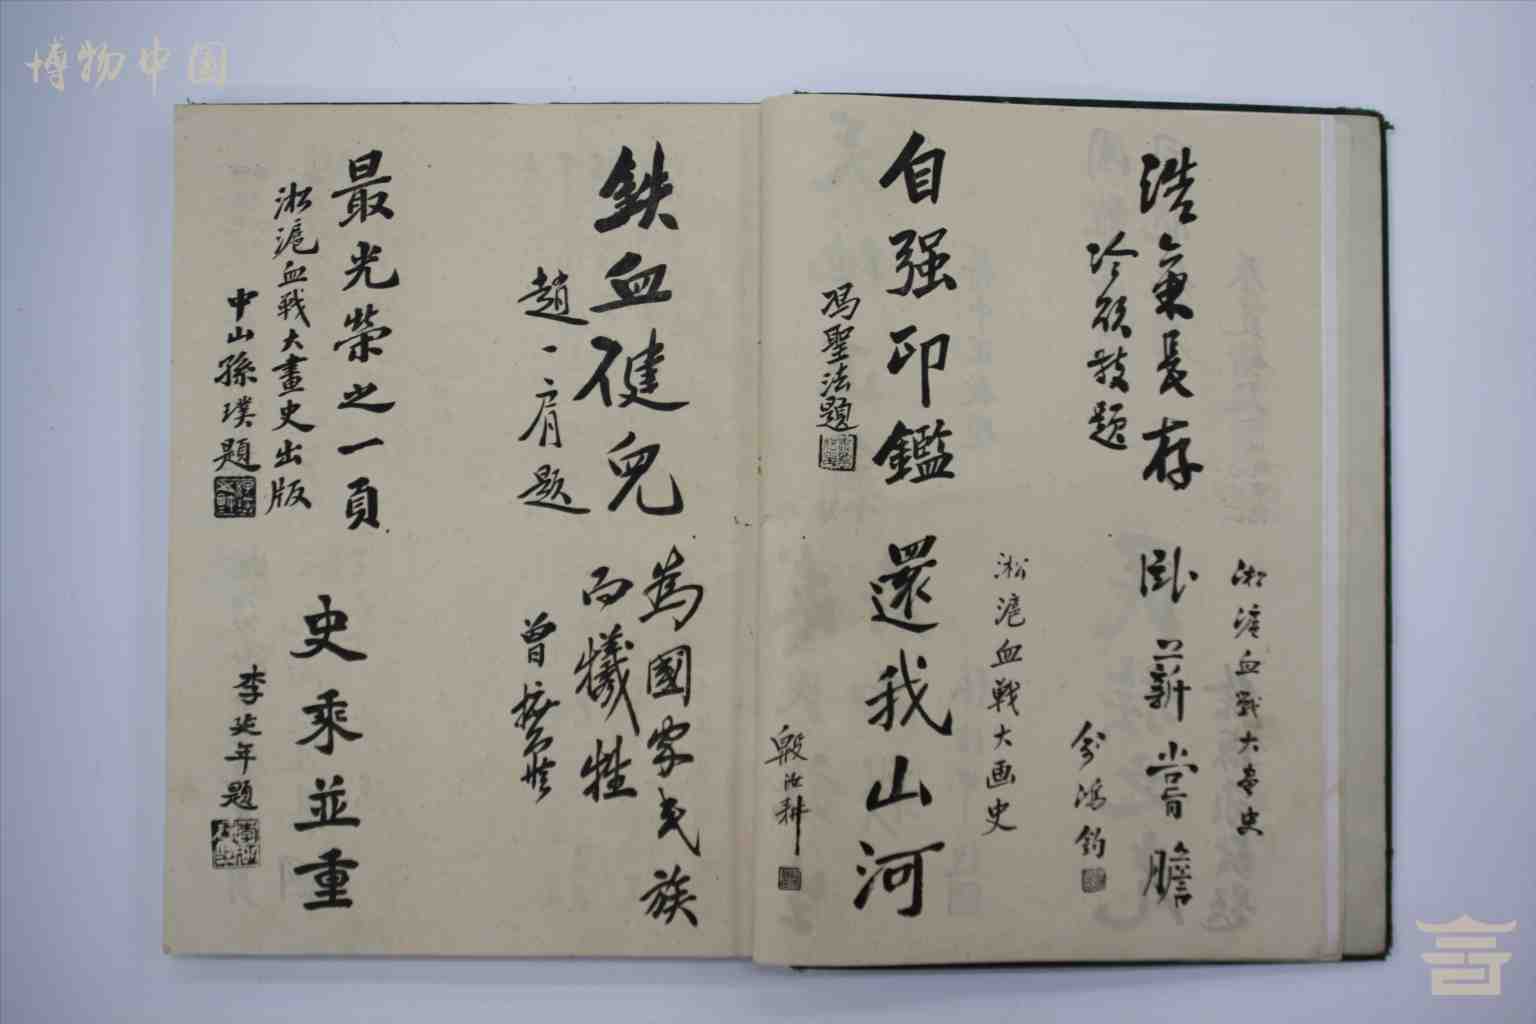 博物中国
浩气长存
冷欣敬题
淞滬血戰大畫史
臥薪嘗膽
俞鴻鈞
自强印鑑
馮聖法題
淞滬血戰大画史
還我山河
殷汝耕
鉄血健兒
趙一肩題
為國家民族
而犧牲
曾擴情
最光榮之一頁
淞滬血戰大畫史出版
中山孫璞題
史乘並重
李延年題